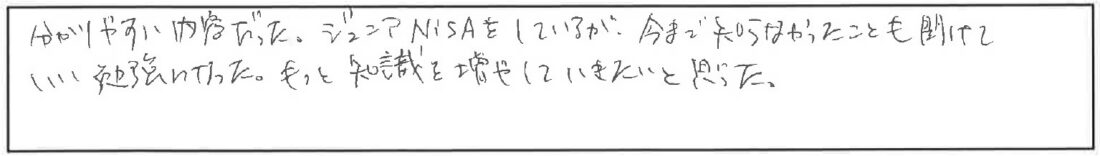 分かりやすい内容だった。ジュニアNISAをしているが、今まで知らなかったことも聞けて
いい勉強になった。もっと知識を増やしていきたいと思った。